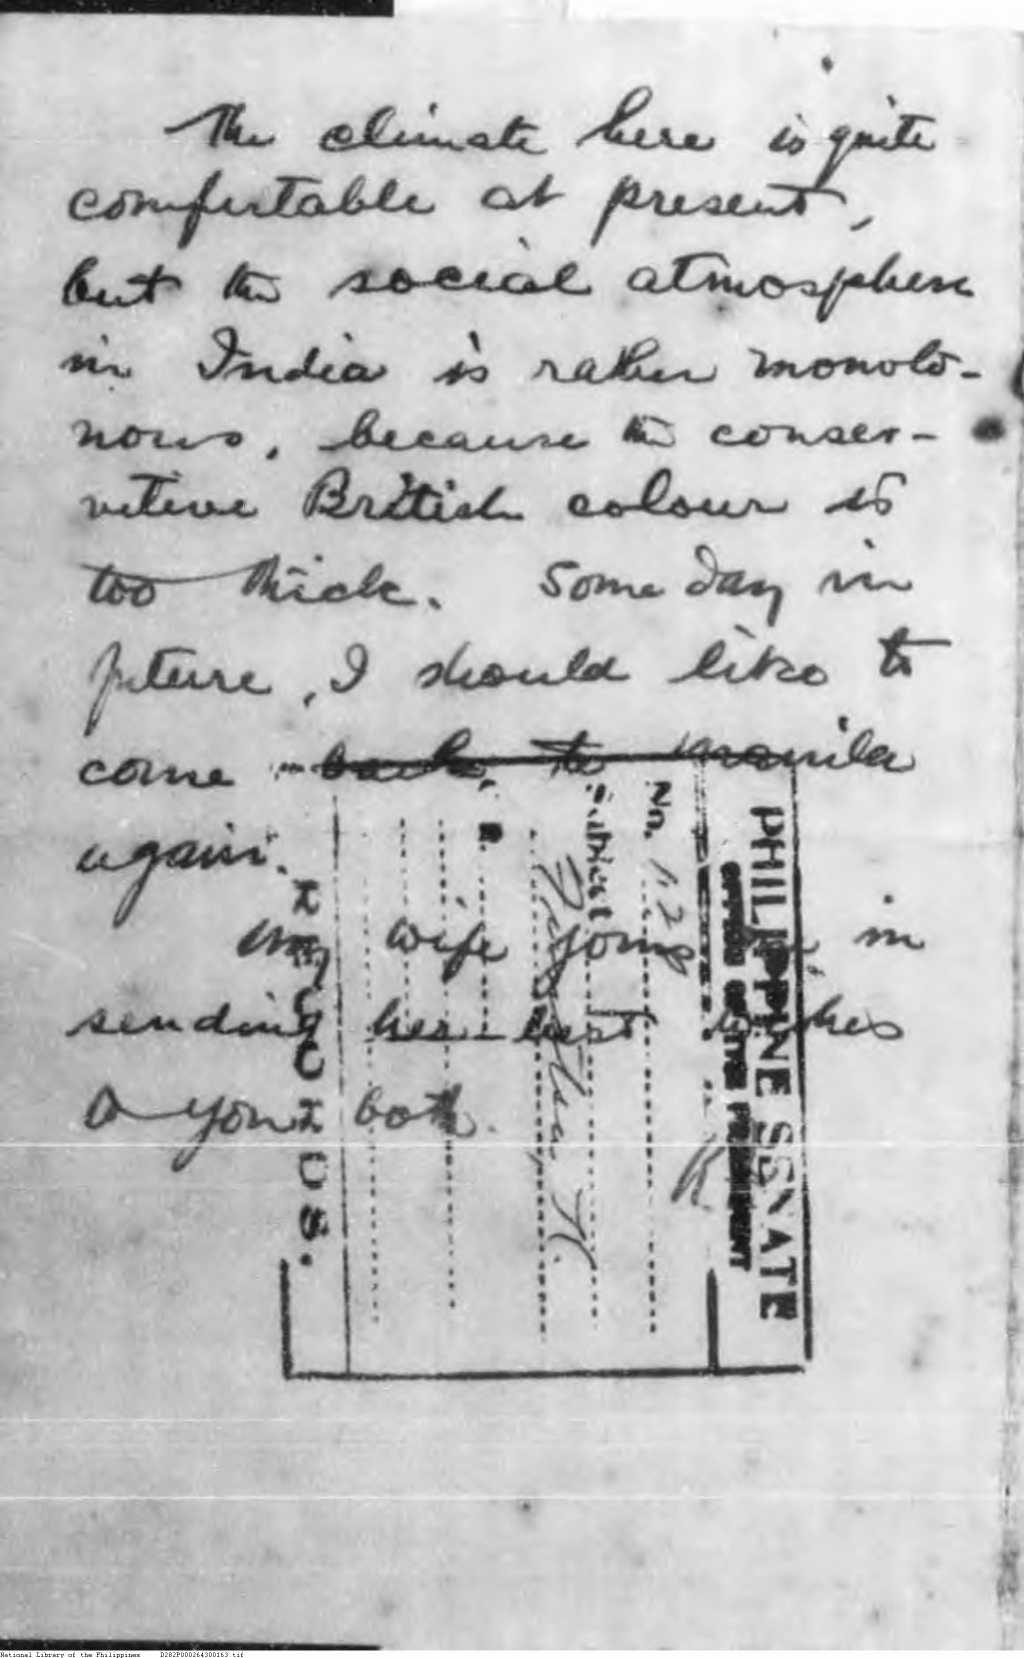 The climate here is quite
comfortable at present,
but the social atmosphere
in India is rather monoto-
nous, because the conser-
vative British colour is
too thick. Some day in
future, I should like to
come back to Manila
again.
My wife joins me in
sending her best wishes
to you both.
PHILIPPINE SENATE
OFFICE OF THE PRESIDENT
No.
Subject
RECORDS.
National Library of the Philippines D282P000264300163.tif